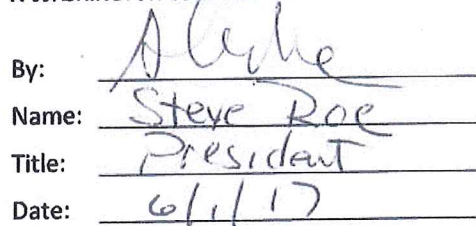 By:
Name: Steve Roe
Title: President
Date: 6/1/17